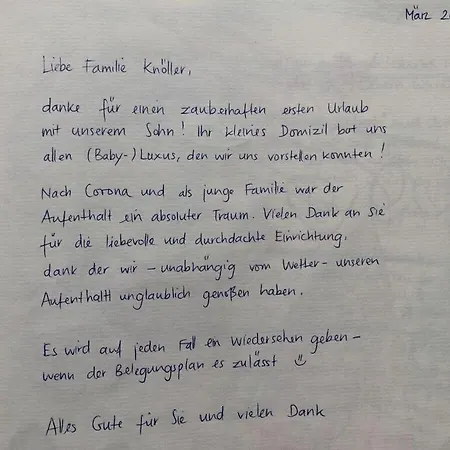 März 2
Liebe Familie Knöller,
danke für einen zauberhaften ersten Urlaub
mit unserem Sohn! Ihr kleines Domizil bot uns
allen (Baby-) Luxus, den wir uns vorstellen konnten!
Nach Corona und als junge Familie war der
Aufenthalt ein absoluter Traum. Vielen Dank an Sie
für die liebevolle und durchdachte Einrichtung,
dank der wir - unabhängig vom Wetter - unseren
Aufenthalt unglaublich genoßen haben.
Es wird auf jeden Fall ein Wiedersehen geben -
wenn der Belegungsplan es zulässt ☺
Alles Gute für Sie und vielen Dank